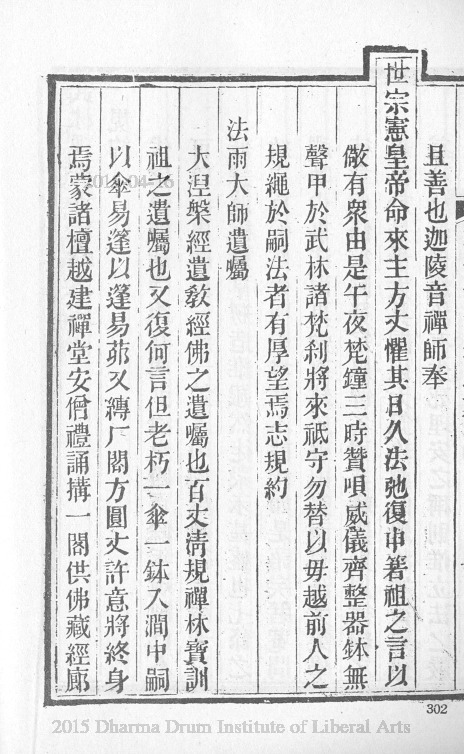 且善也迦陵音禪師奉
世宗憲皇帝命來主方丈懼其日久法弛復申箬祖之言以
儆有眾由是午夜梵鐘三時贊唄威儀齊整器鉢無
聲甲於武林諸梵剎將來祗守勿替以毋越前人之
規繩於嗣法者有厚望焉志規約
法雨大師遺囑
大涅槃經遺教經佛之遺囑也百丈清規禪林寶訓
祖之遺囑也又復何言但老朽一傘一鉢入澗中嗣
以傘易蓬以蓬易茆又縛厂閣方圓丈許意將終身
焉蒙諸檀越建禪堂安僧禮誦搆一閣供佛藏經廊
302
2015 Dharma Drum Institute of Liberal Arts